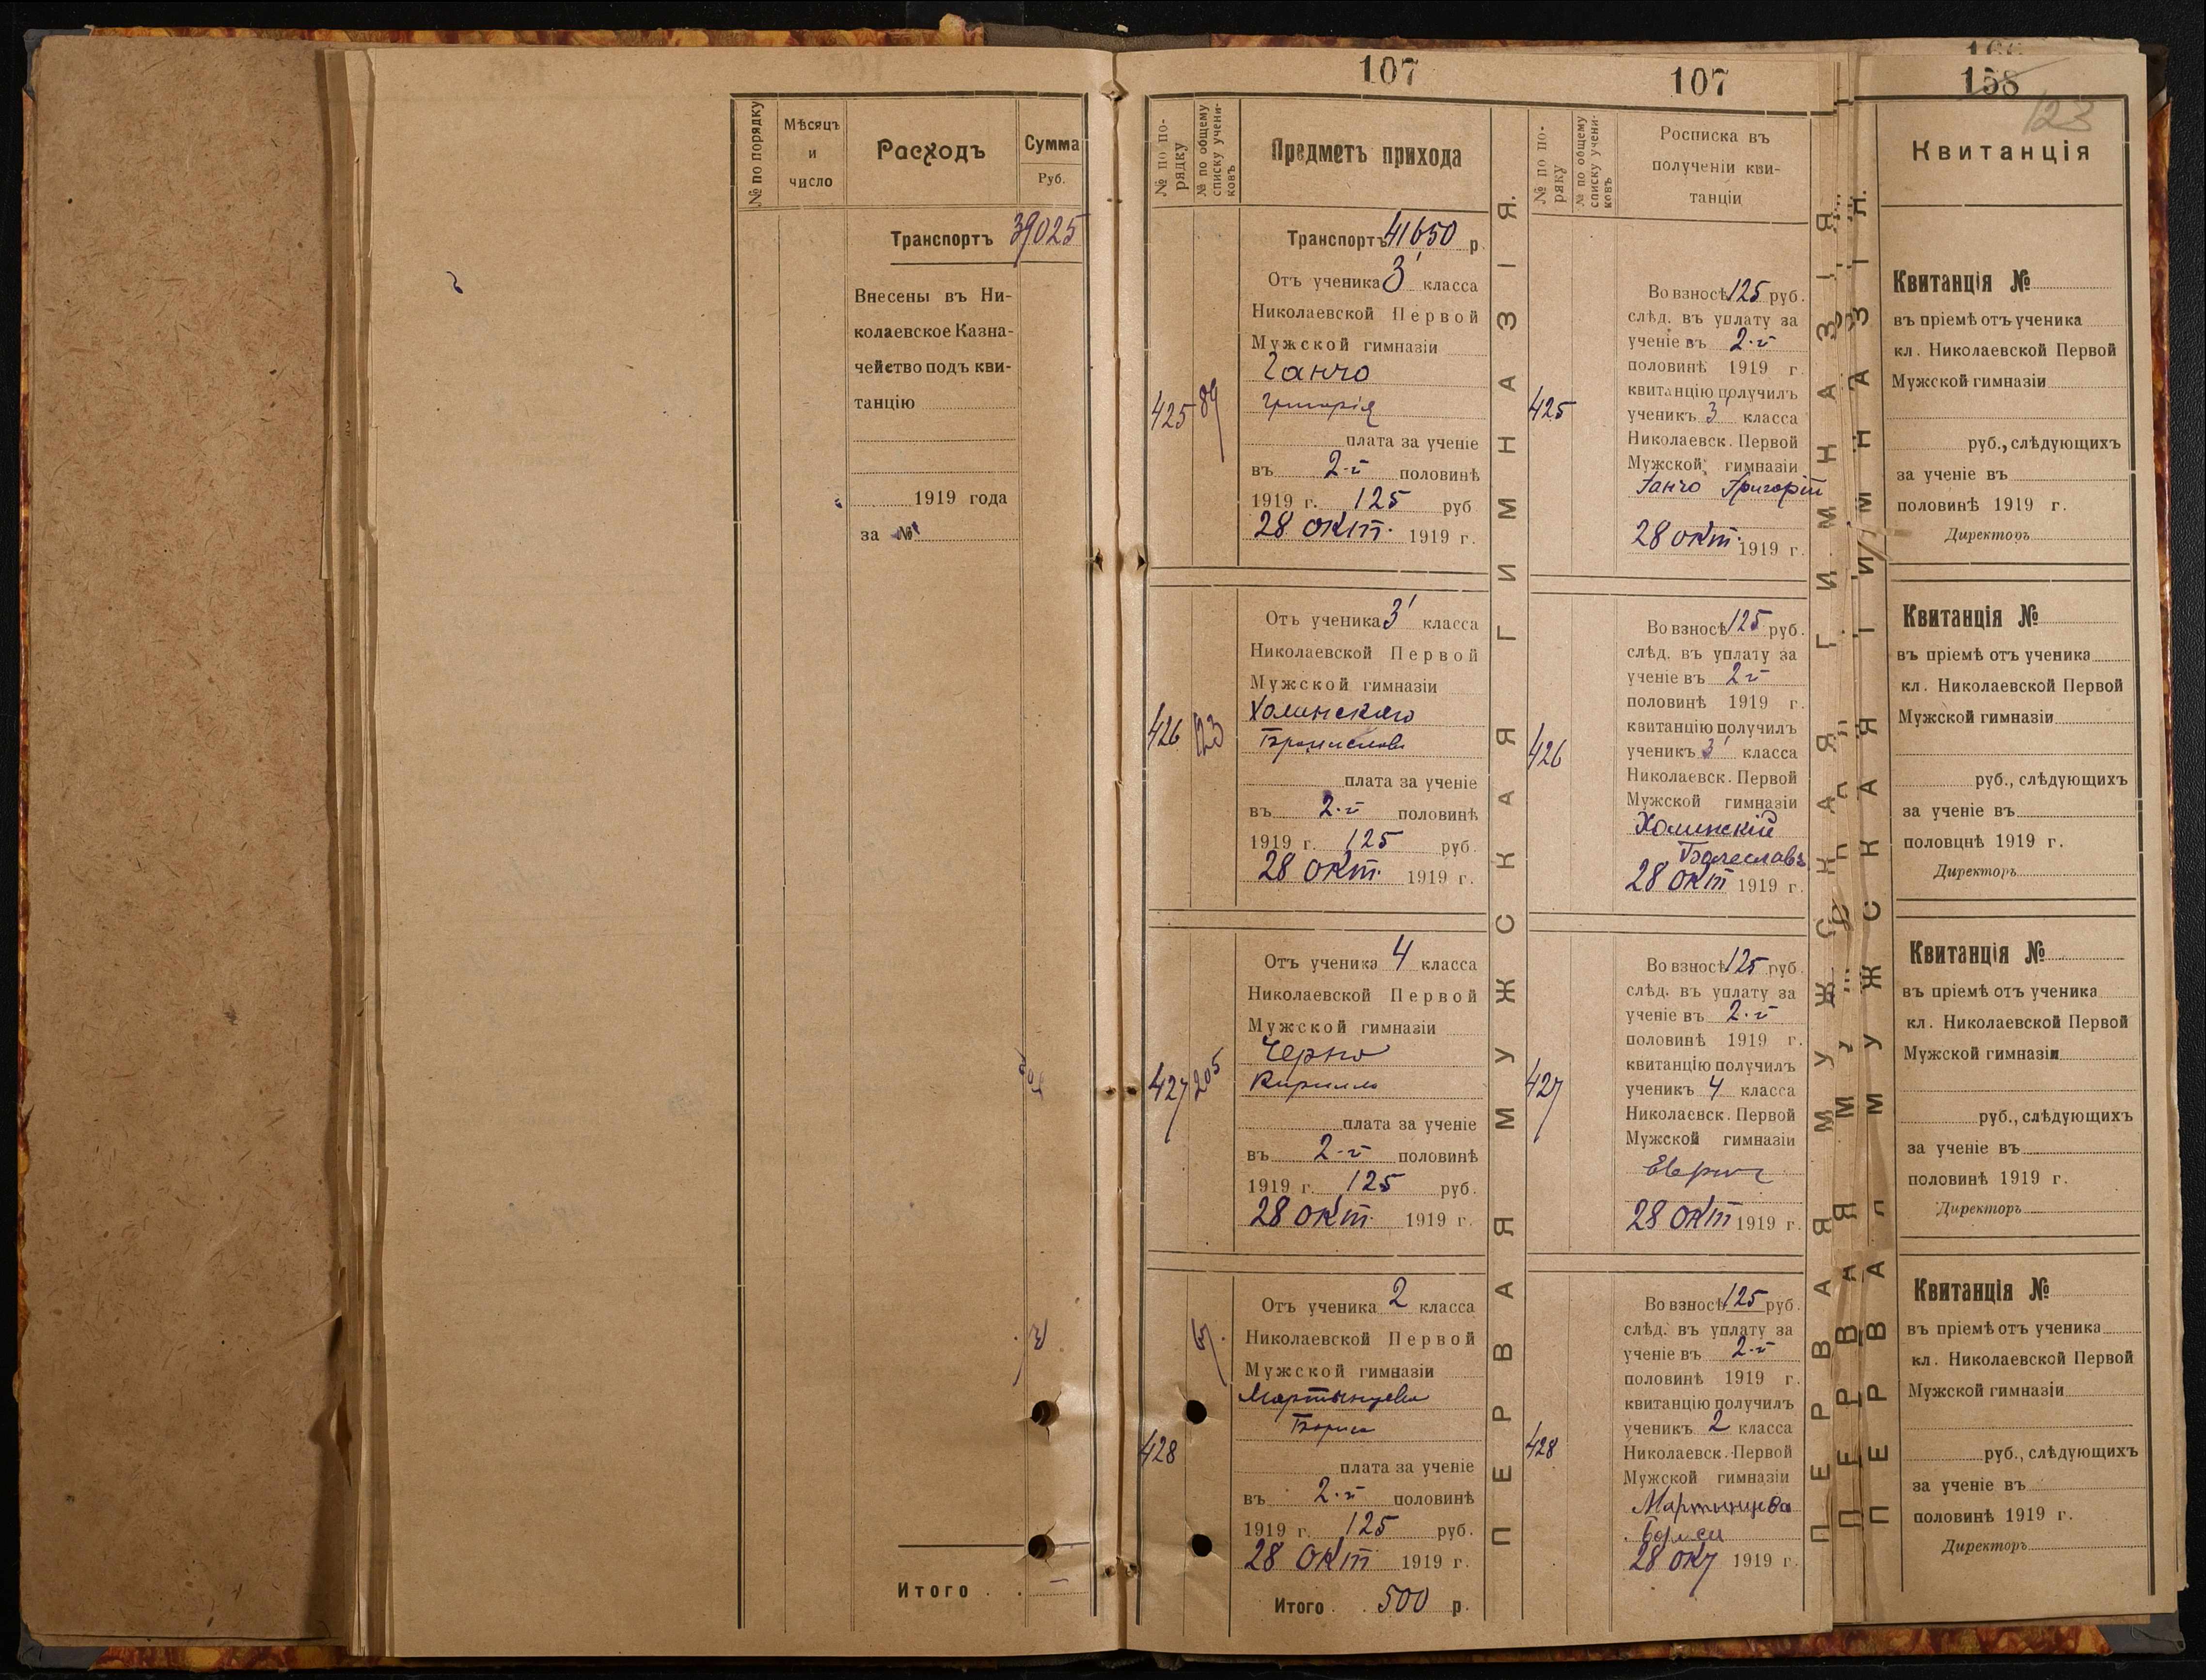 № по порядку
Мѣсяцъ
и
число
Расходъ
Сумма
Руб.
Транспортъ 39025
Внесены въ Ни-
колаевское Казна-
чейство подъ кви-
танцію
1919 года
за №
Итого . . —
107
№ по по-
рядку
№ по общему
списку учени-
ковъ
Предметъ прихода
Транспортъ 41650 р
425
89
Отъ ученика 3' класса
Николаевской Первой
Мужской гимназіи
Ганчо
Григорія
плата за ученіе
въ 2-й половинѣ
1919 г. 125 руб
28 окт. 1919 г.
426
123
Отъ ученика 3' класса
Николаевской Первой
Мужской гимназіи
Холинскаго
плата за ученіе
въ 2-й половинѣ
1919 г. 125 руб.
28 окт. 1919 г.
427
205
Отъ ученика 4 класса
Николаевской Первой
Мужской гимназіи
Черно
Кирилло
плата за ученіе
въ 2-й половинѣ
1919 г. 125 руб.
28 окт. 1919 г.
428
Отъ ученика 2 класса
Николаевской Первой
Мужской гимназіи
Мартынцева
Бориса
плата за ученіе
въ 2-й половинѣ
1919 г. 125 руб.
28 окт 1919 г.
Итого . . 500 р.
ПЕРВАЯ МУЖСКАЯ ГИМНАЗІЯ.
107
№ по по-
ряку
№ по общему
списку учени-
ковъ
Росписка въ
полученіи кви-
танціи
425
Во взносѣ 125 руб.
слѣд. въ уплату за
ученіе въ 2-й
половинѣ 1919 г.
квитанцію получилъ
ученикъ 3 класса
Николаевск. Первой
Мужской гимназіи
Ганчо Григорій
28 окт. 1919 г.
426
Во взносѣ 125 руб.
слѣд. въ уплату за
ученіе въ 2й
половинѣ 1919 г.
квитанцію получилъ
ученикъ 3' класса
Николаевск. Первой
Мужской гимназіи
Холинскій
Болеславъ
28 окт 1919 г.
427
Во взносѣ 125 руб.
слѣд. въ уплату за
ученіе въ 2-й
половинѣ 1919 г.
квитанцію получилъ
ученикъ 4 класса
Николаевск. Первой
Мужской гимназіи
28 окт 1919 г.
428
Во взносѣ 125 руб.
слѣд. въ уплату за
ученіе въ 2-й
половинѣ 1919 г.
квитанцію получилъ
ученикъ 2 класса
Николаевск. Первой
Мужской гимназіи
Мартынцева
Бориси
28 окт 1919 г.
ПЕРВАЯ МУЖСКАЯ ГИМНАЗІЯ
ПЕРВАЯ МУЖСКАЯ ГИМНАЗІЯ.
158
123
Квитанція
Квитанція №
въ пріемѣ отъ ученика
кл. Николаевской Первой
Мужской гимназіи
руб., слѣдующихъ
за ученіе въ
половинѣ 1919 г.
Директоръ
Квитанція №
въ пріемѣ отъ ученика
кл. Николаевской Первой
Мужской гимназіи
руб., слѣдующихъ
за ученіе въ
половцнѣ 1919 г.
Директоръ
Квитанція №
въ пріемѣ отъ ученика
кл. Николаевской Первой
Мужской гимназіи
руб., слѣдующихъ
за ученіе въ
половинѣ 1919 г.
Директоръ
Квитанція №
въ пріемѣ отъ ученика
кл. Николаевской Первой
Мужской гимназіи
руб., слѣдующихъ
за ученіе въ
половинѣ 1919 г.
Директоръ